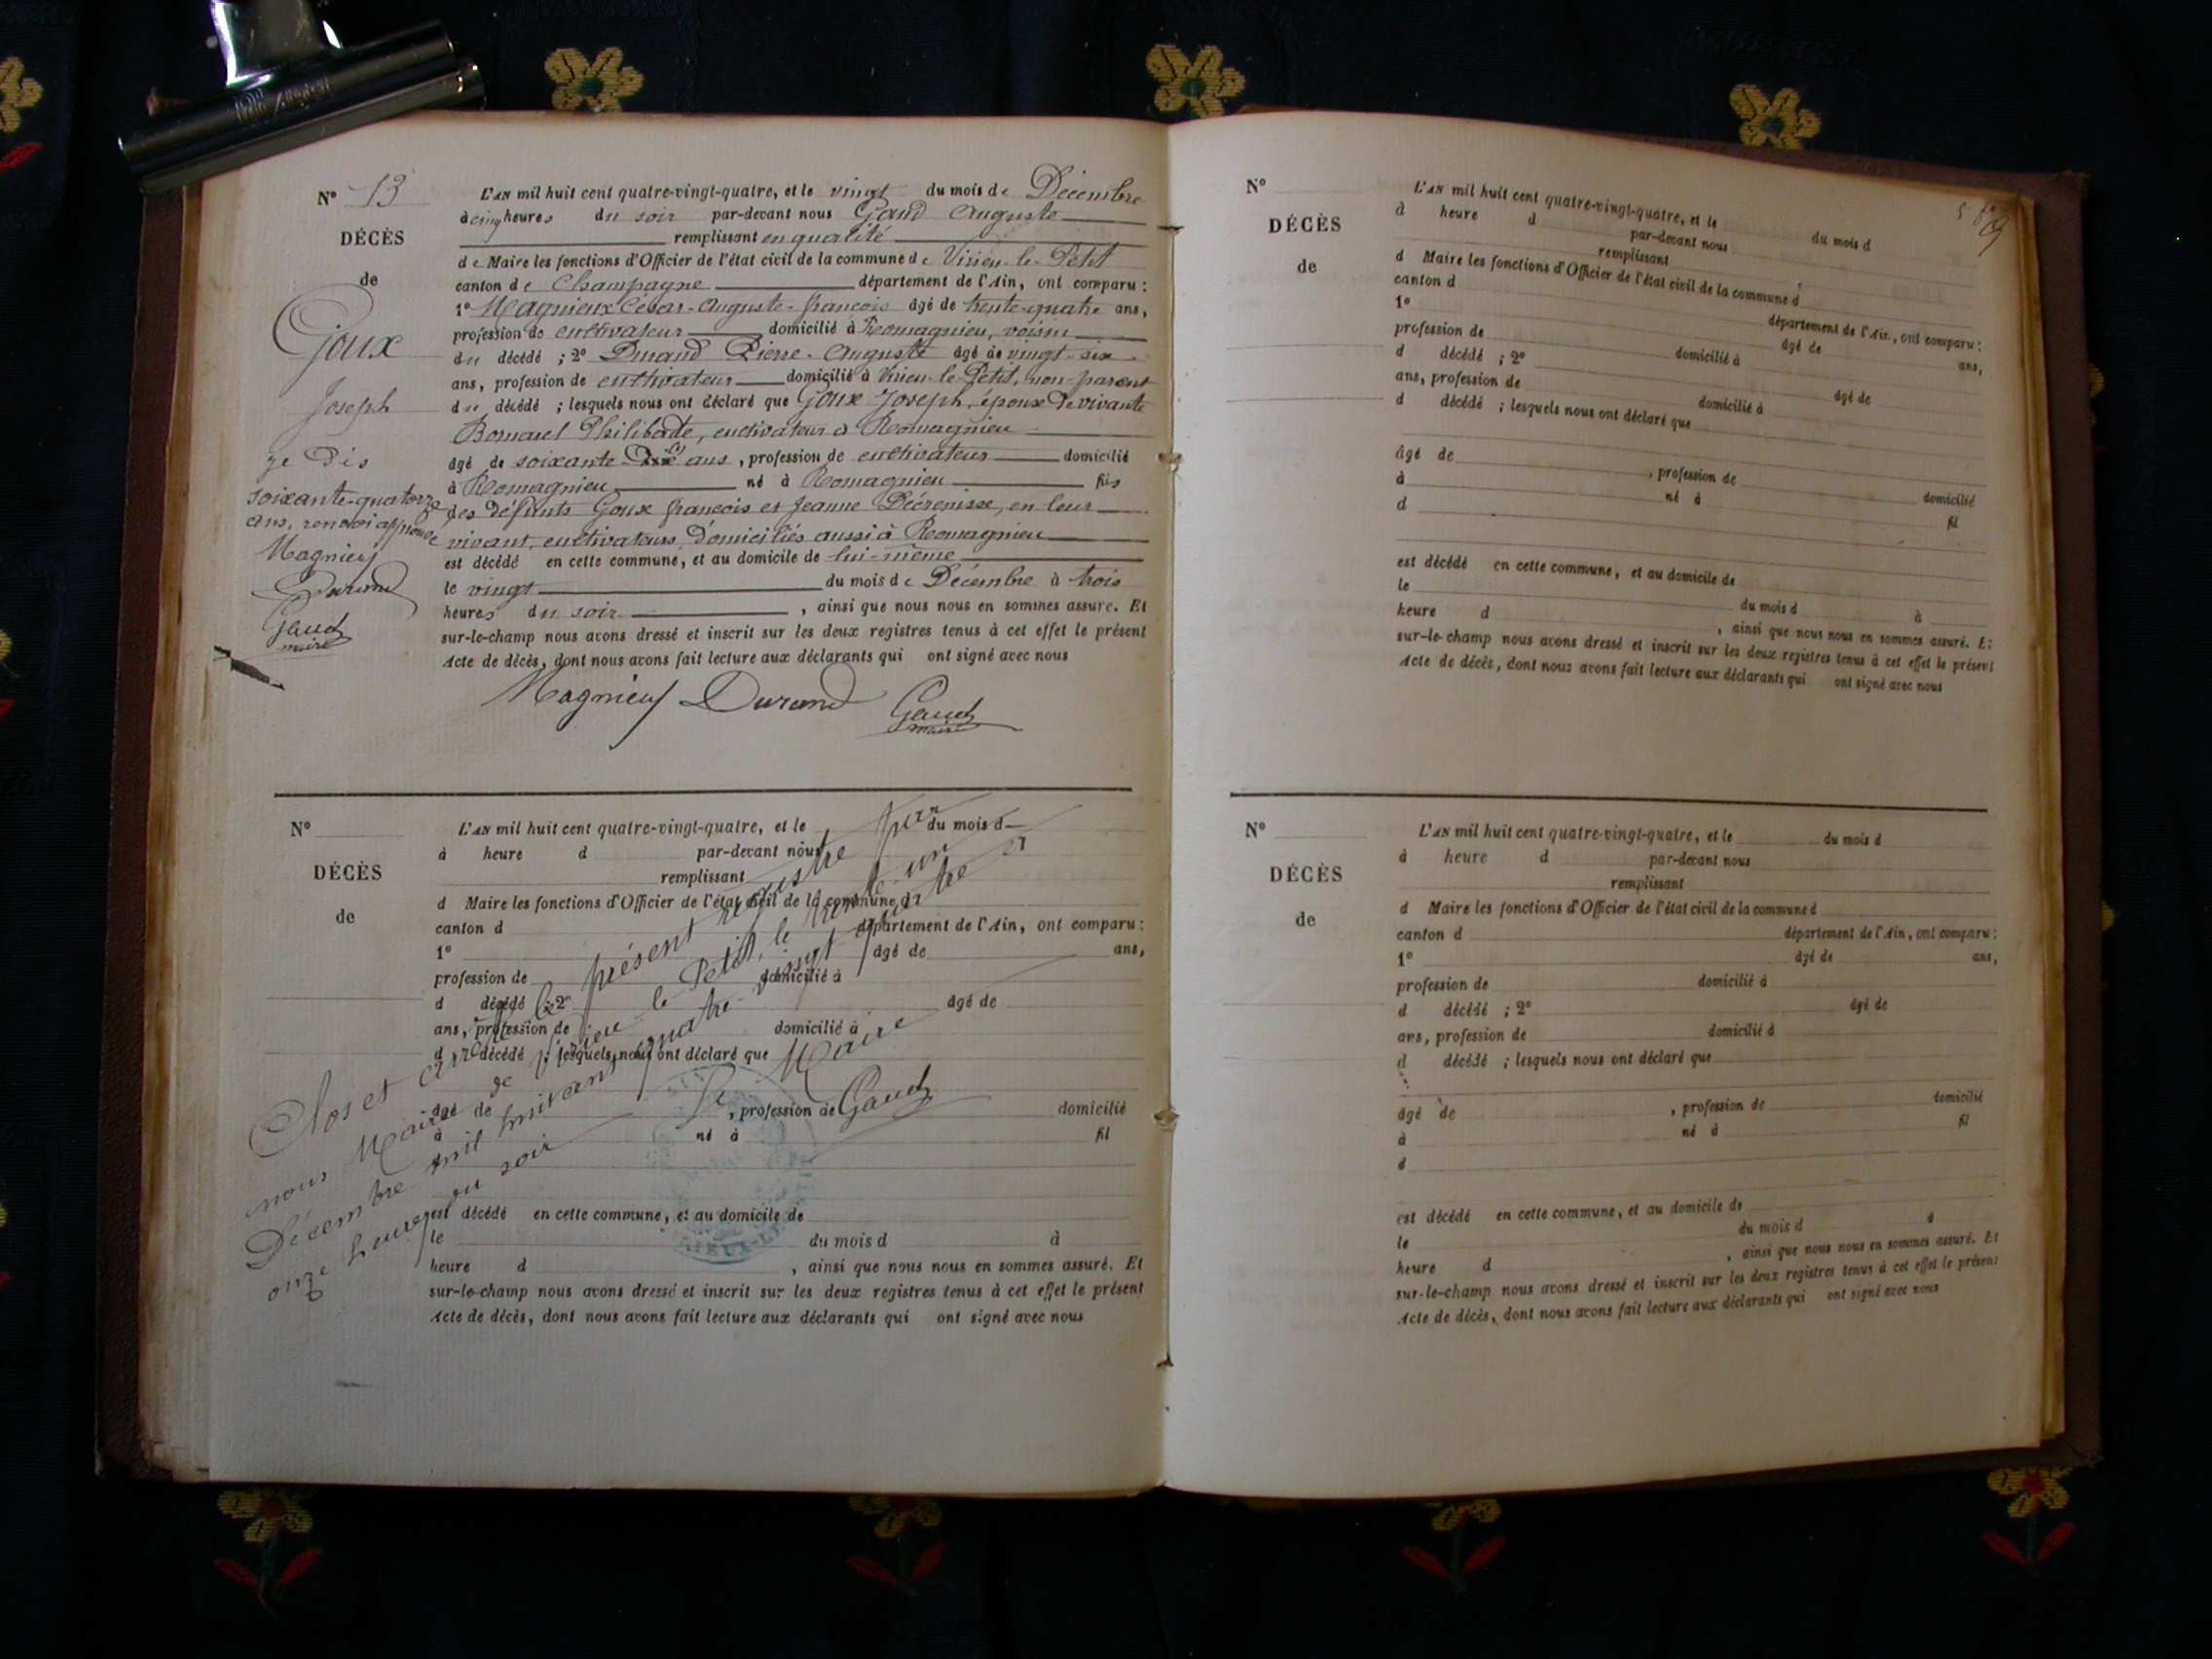 N° 13
DÉCÈS
de
Goux
Joseph
je dis
soixante-quatorze
ans, renvoi approuvé
Magnieux
Durand
Gaud
maire
L'AN mil huit cent quatre-vingt-quatre, et le vingt du mois de Décembre
à cinq heures du soir par-devant nous Gaud Auguste
remplissant en qualité
de Maire les fonctions d'Officier de l'état civil de la commune de Virieu-le-Petit
canton de Champagne département de l'Ain, ont comparu :
1° Magnieux César-Auguste-françois âgé de trente-quatre ans,
profession de cultivateur domicilié à Romagnieu, voisin
du décédé ; 2° Durand Pierre-Auguste âgé de vingt-six
ans, profession de cultivateur domicilié à Virieu-le-Petit, non-parent
du décédé ; lesquels nous ont déclaré que Goux Joseph, époux de vivante
Philiberte, cultivateur à Romagnieu
âgé de soixante ans, profession de cultivateur domicilié
à Romagnieu né à Romagnieu fils
des défunts Goux françois et Jeanne en leur
vivant, cultivateurs, domiciliés aussi à Romagnieu
est décédé en cette commune, et au domicile de lui-même
le vingt du mois de Décembre à trois
heures du soir, ainsi que nous nous en sommes assuré. Et
sur-le-champ nous avons dressé et inscrit sur les deux registres tenus à cet effet le présent
Acte de décès, dont nous avons fait lecture aux déclarants qui ont signé avec nous
Magnieux Durand Gaud
maire
N°
DÉCÈS
de
L'AN mil huit cent quatre-vingt-quatre, et le du mois d
à heure d par-devant nous
remplissant
d Maire les fonctions d'Officier de l'état civil de la commune d
canton d département de l'Ain, ont comparu :
1° âgé de ans,
profession de domicilié à
d décédé ; 2° âgé de
ans, profession de domicilié à
d décédé ; lesquels nous ont déclaré que
âgé de , profession de domicilié
à né à fil
est décédé en cette commune, et au domicile de
le du mois d à
heure d , ainsi que nous nous en sommes assuré. Et
sur-le-champ nous avons dressé et inscrit sur les deux registres tenus à cet effet le présent
Acte de décès, dont nous avons fait lecture aux déclarants qui ont signé avec nous
Clos et arrêté le présent registre par
nous Maire de Virieu-le-Petit, le trente-un
Décembre mil huit cent quatre-vingt-quatre à
onze heures du soir
Le Maire
Gaud
N°
DÉCÈS
de
L'AN mil huit cent quatre-vingt-quatre, et le du mois d
à heure d par-devant nous
remplissant
d Maire les fonctions d'Officier de l'état civil de la commune d
canton d département de l'Ain, ont comparu :
1° âgé de ans,
profession de domicilié à
d décédé ; 2° âgé de
ans, profession de domicilié à
d décédé ; lesquels nous ont déclaré que
âgé de , profession de domicilié
à né à fil
d
est décédé en cette commune, et au domicile de
le du mois d à
heure d , ainsi que nous nous en sommes assuré. Et
sur-le-champ nous avons dressé et inscrit sur les deux registres tenus à cet effet le présent
Acte de décès, dont nous avons fait lecture aux déclarants qui ont signé avec nous
N°
DÉCÈS
de
L'AN mil huit cent quatre-vingt-quatre, et le du mois d
à heure d par-devant nous
remplissant
d Maire les fonctions d'Officier de l'état civil de la commune d
canton d département de l'Ain, ont comparu :
1° âgé de ans,
profession de domicilié à
d décédé ; 2° âgé de
ans, profession de domicilié à
d décédé ; lesquels nous ont déclaré que
âgé de , profession de domicilié
à né à fil
d
est décédé en cette commune, et au domicile de
le du mois d à
heure d , ainsi que nous nous en sommes assuré. Et
sur-le-champ nous avons dressé et inscrit sur les deux registres tenus à cet effet le présent
Acte de décès, dont nous avons fait lecture aux déclarants qui ont signé avec nous